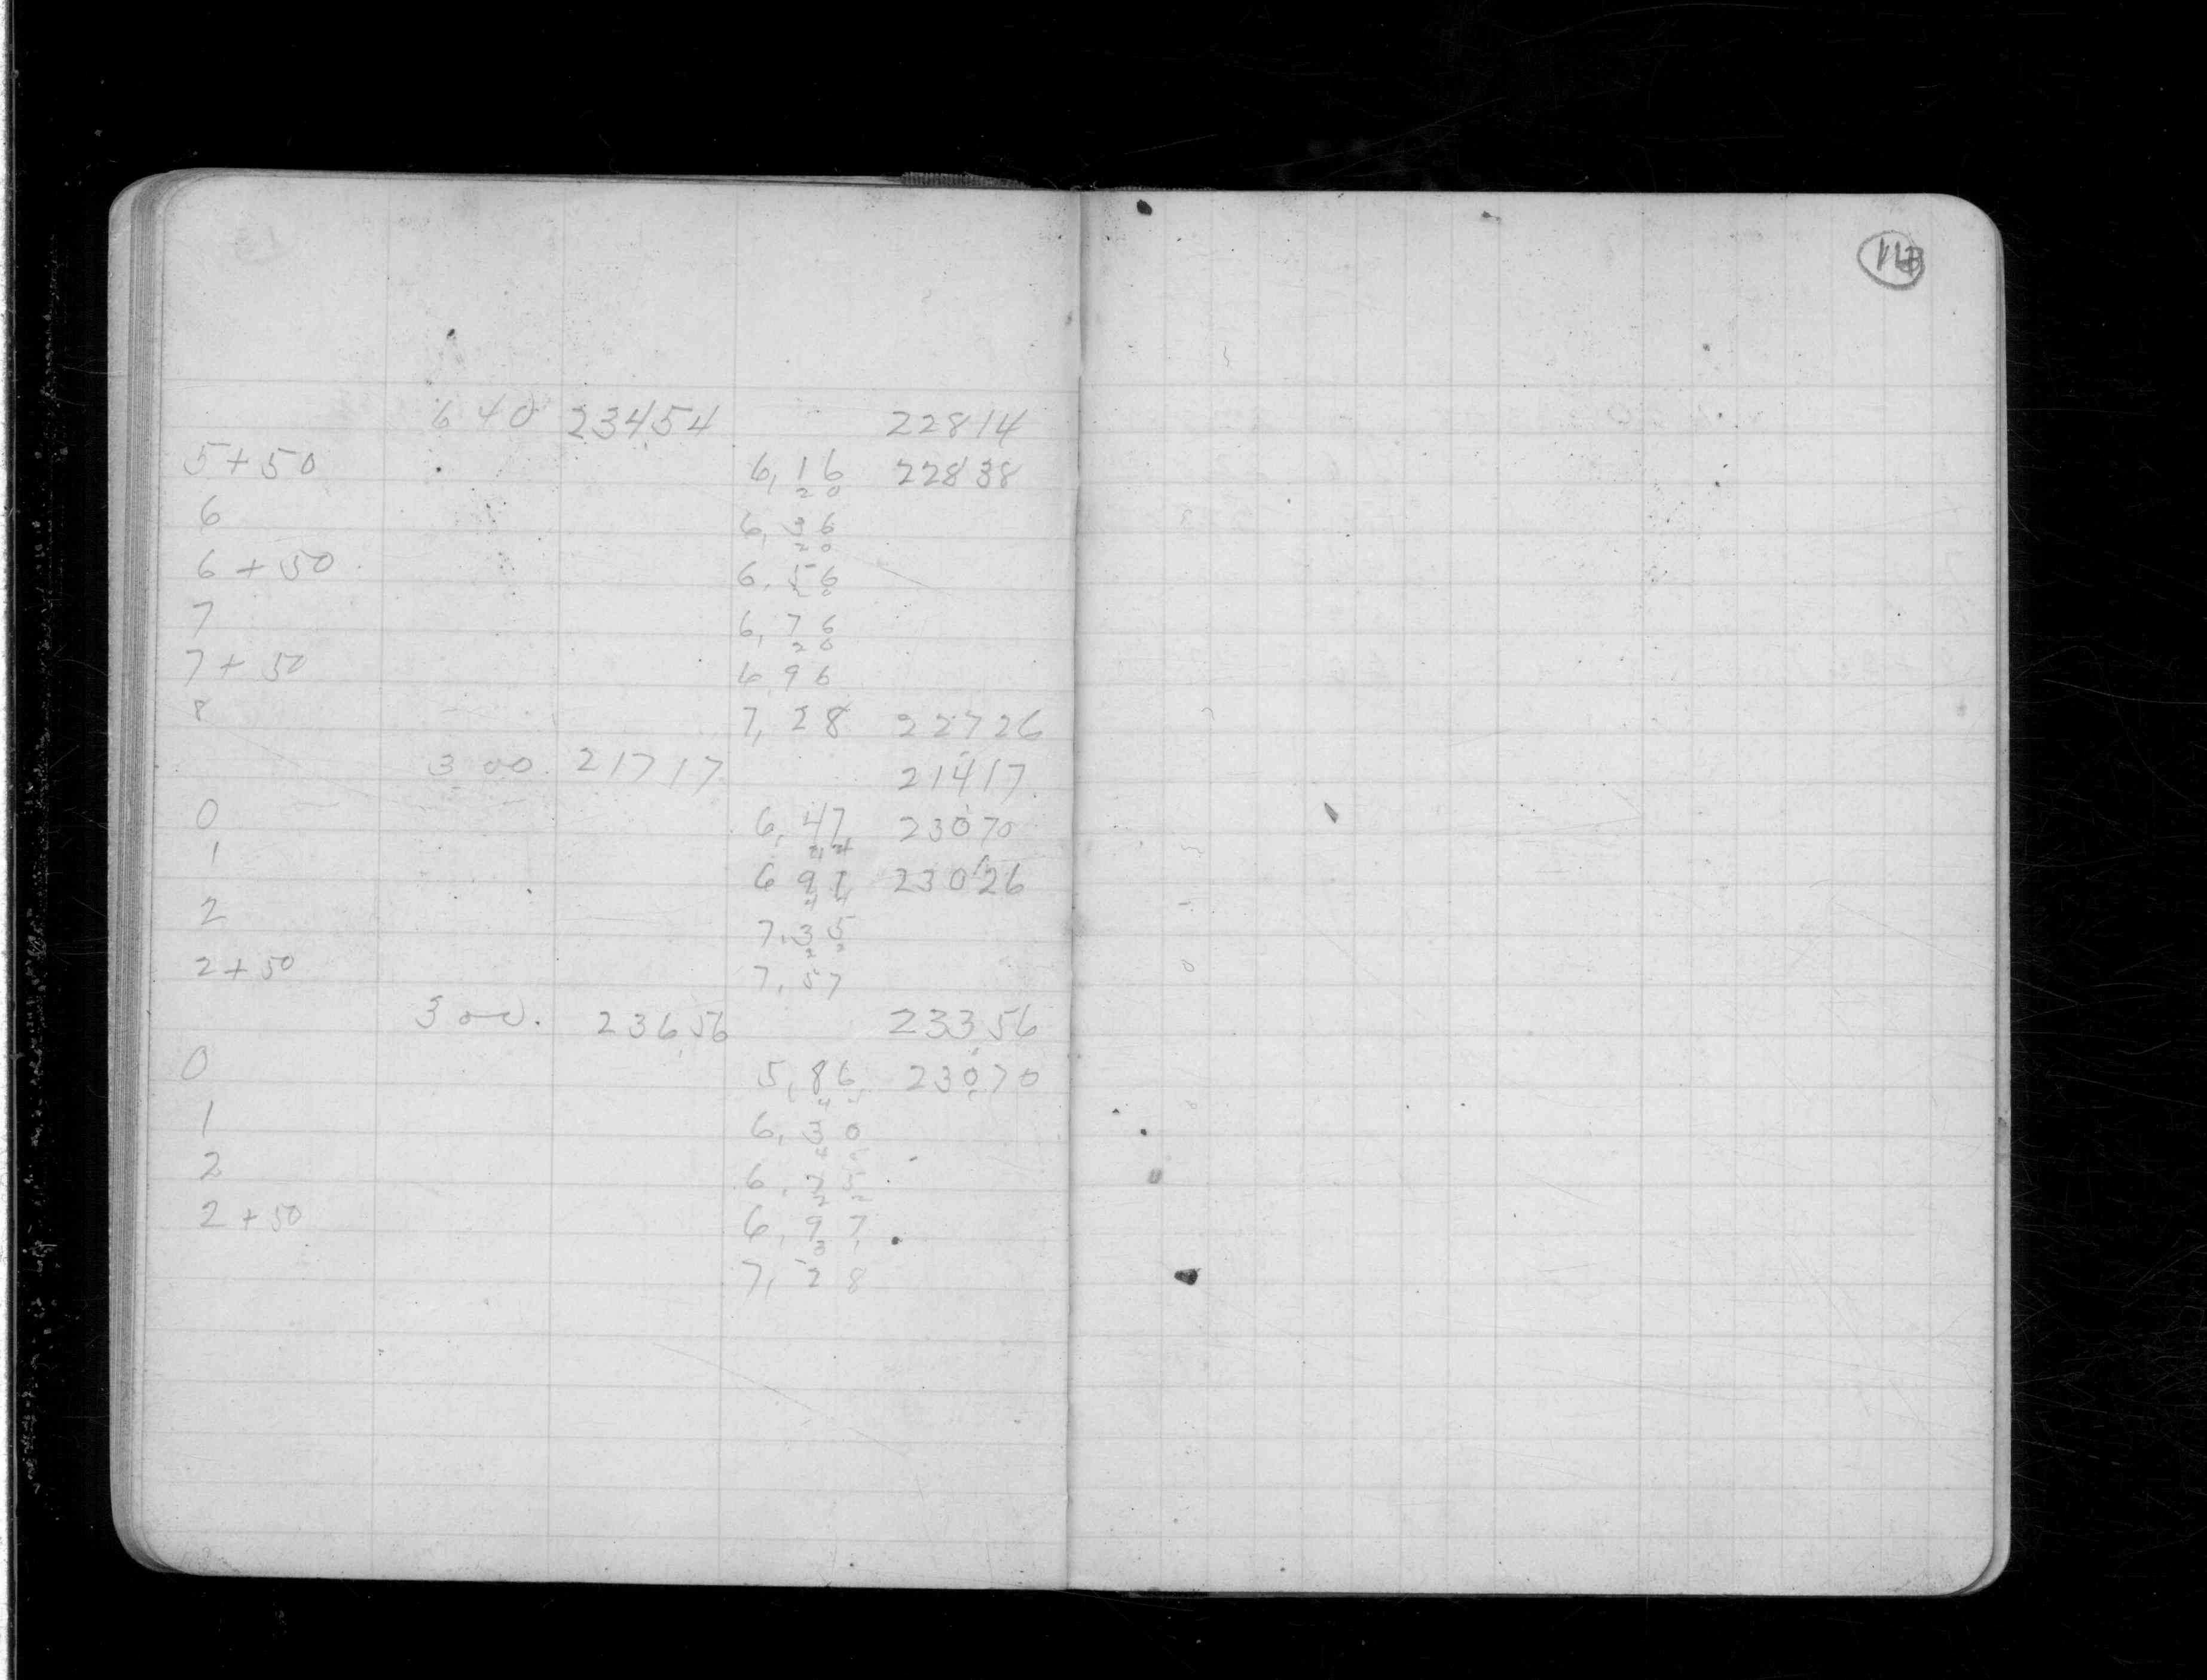 640 23454 22814
5+50 6,16 22838
20
6 6,36
20
6+50 6,56
20
7 6,76
20
7+50 6,96
8 7,28 22726
300. 21717 21417
0 6,47 23070
44
1 6 91 23026
44
2 7,35
22
2+50 7,57
300. 23656 23356
0 5,86 23070
44
1 6,30
2 6,75
22
2+50 6,97
31
7,28